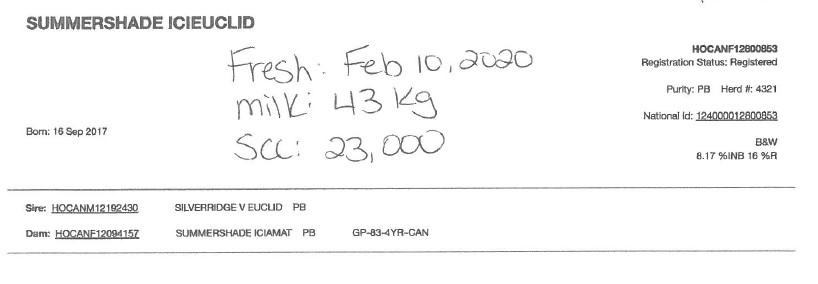 SUMMERSHADE ICIEUCLID
HOCANF12800853
Registration Status: Registered
Fresh: Feb 10, 2020
milk: 43 kg
SCC: 23,000
Purity: PB Herd #: 4321
National Id: 124000012800853
Born: 16 Sep 2017
B&W
8.17 %INB 16 %R
Sire: HOCANM12192430 SILVERRIDGE V EUCLID PB
Dam: HOCANF12094157 SUMMERSHADE ICIAMAT PB GP-83-4YR-CAN